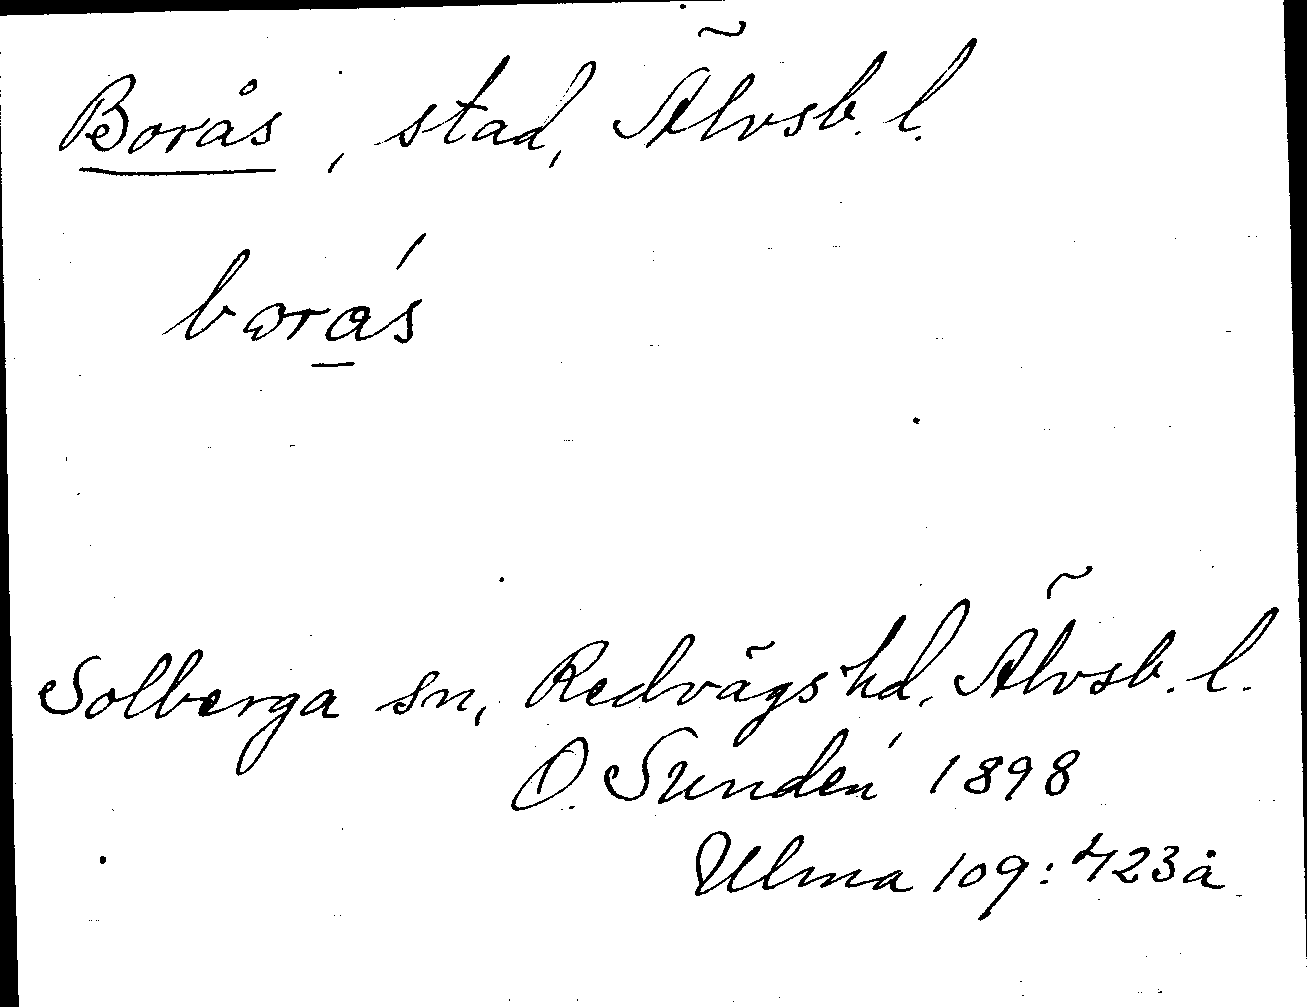 Borås, stad, Älvsb. l.
borás
Solberga sn, Redvägs hd, Älvsb. l.
O. Sundén 1898
Ulma 109:423å